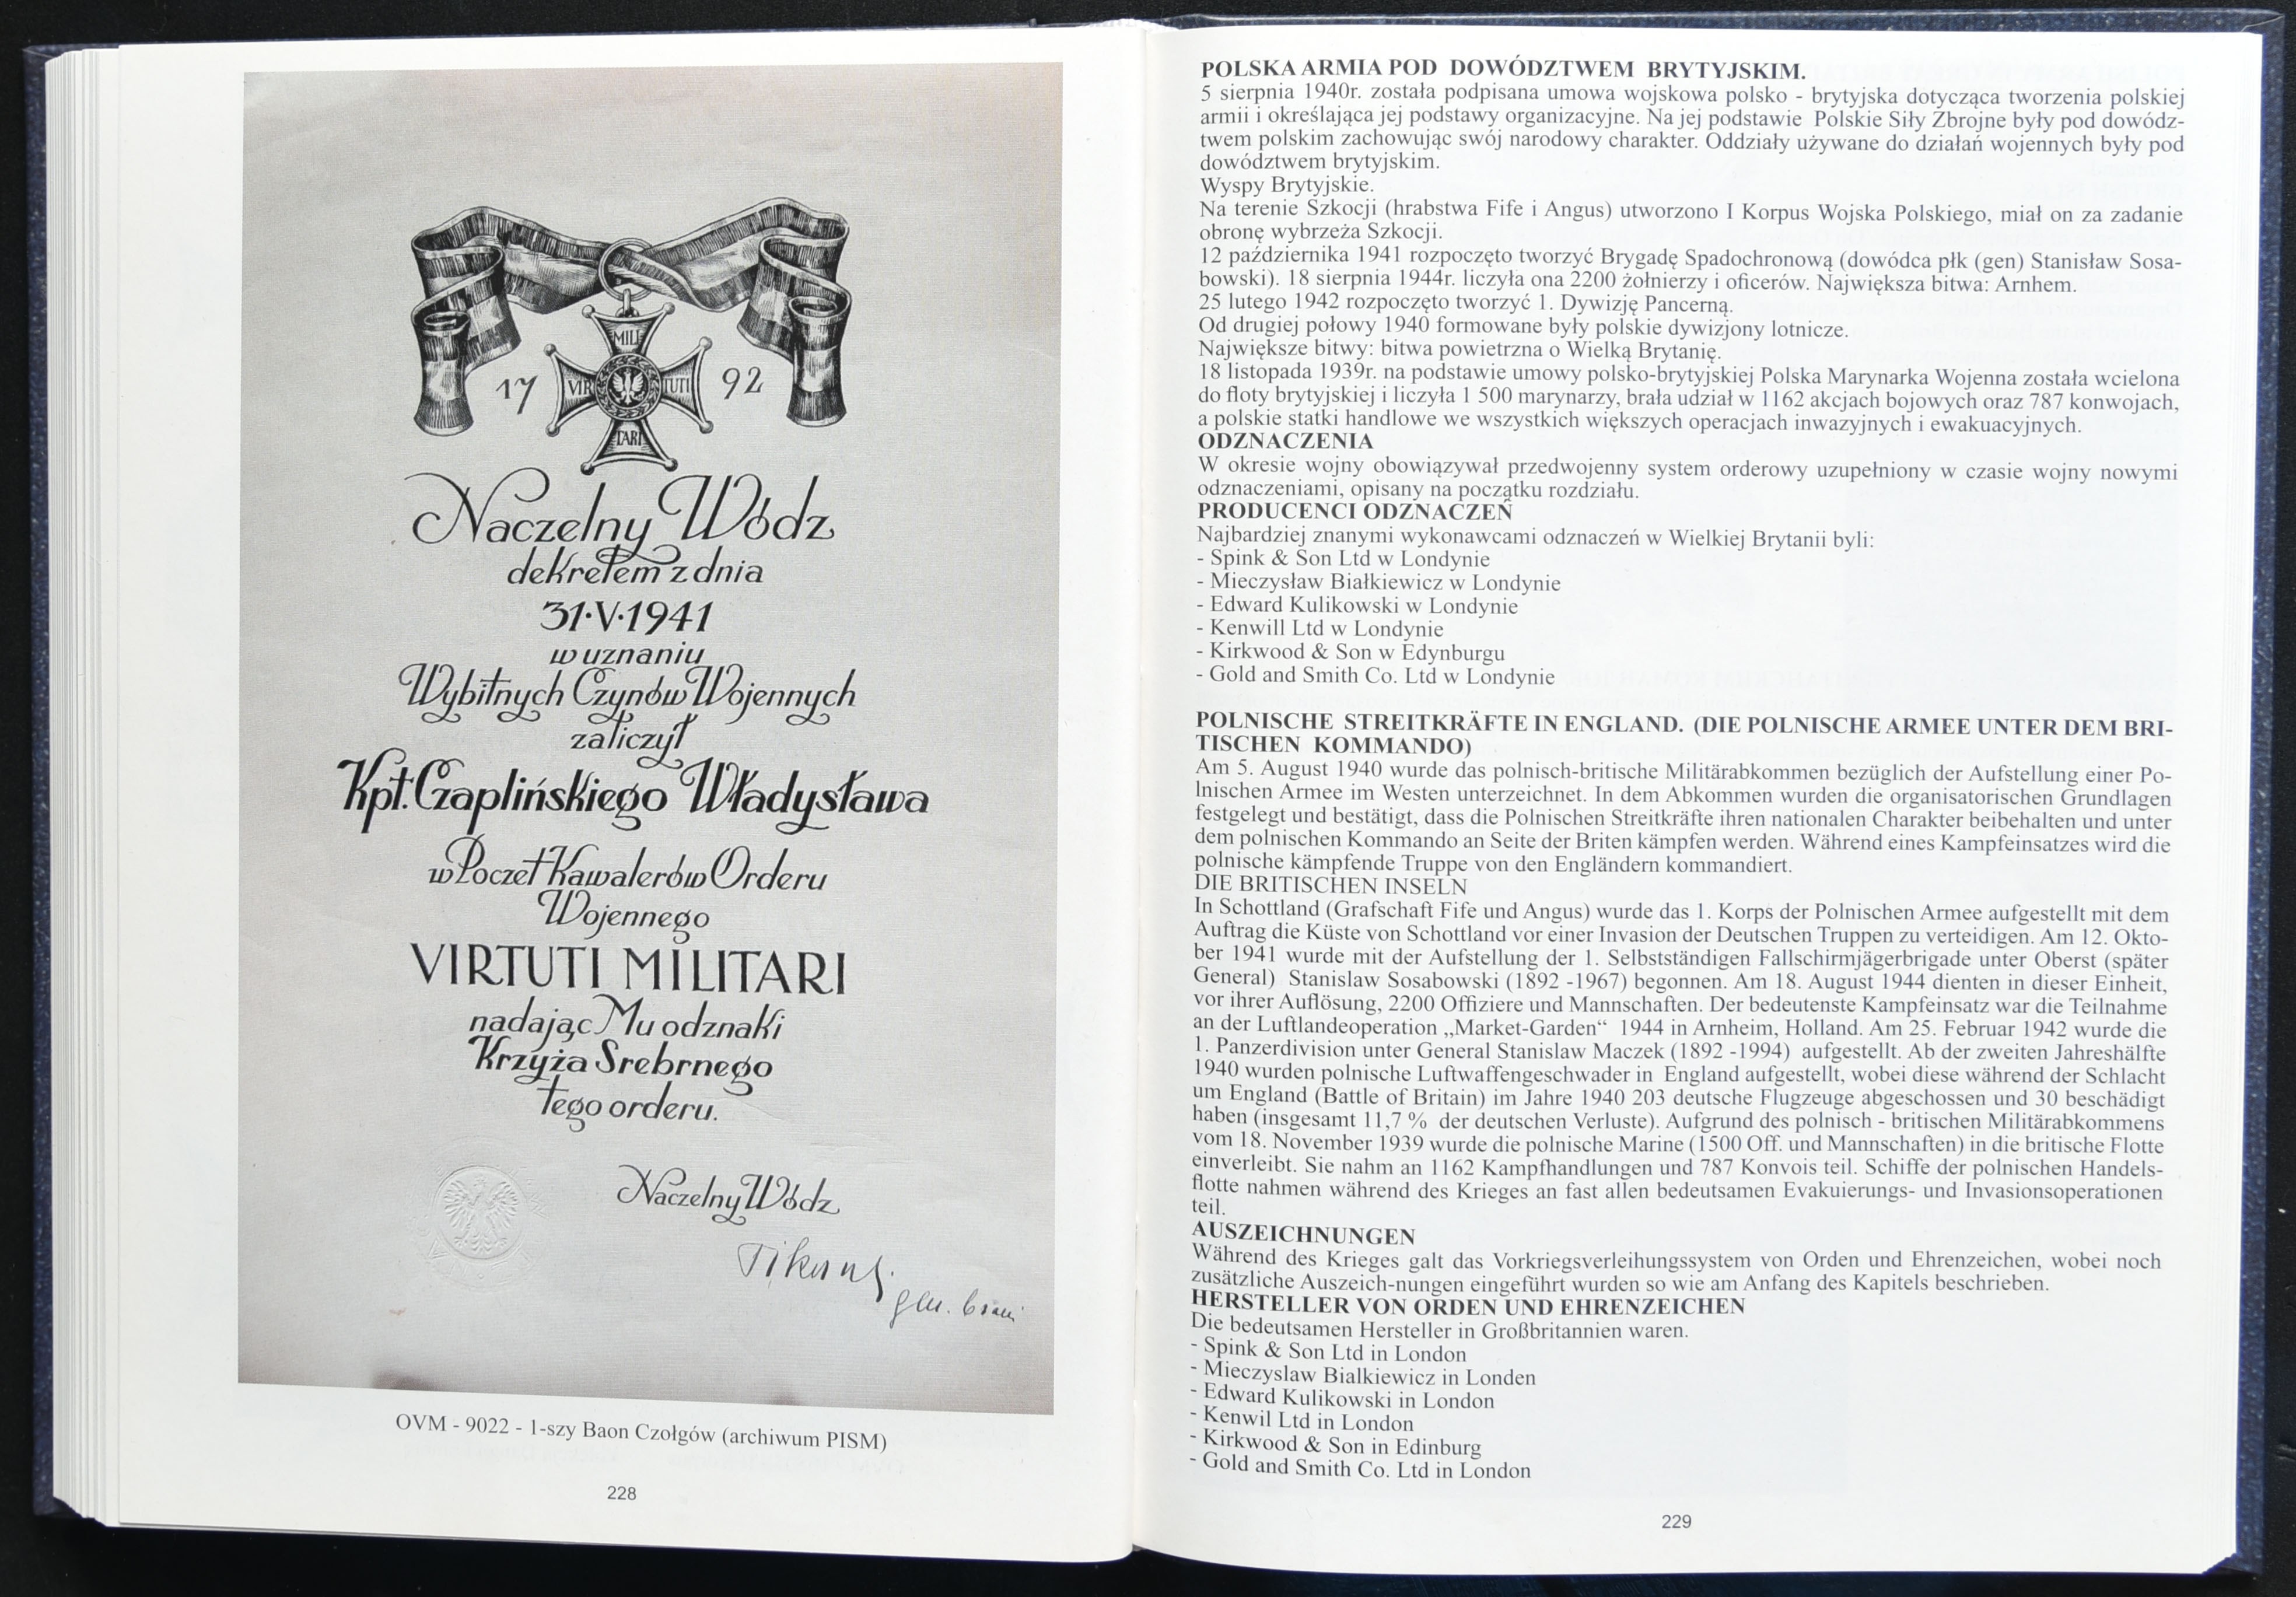 MILI
17
VIR
TUTI
92
TARI
Naczelny Wódz
dekretem z dnia
31·V·1941
w uznaniu
Wybitnych Czynów Wojennych
zaliczył
Kpt. Czaplińskiego Władysława
w Poczet Kawalerów Orderu
Wojennego
VIRTUTI MILITARI
nadając Mu odznaki
Krzyża Srebrnego
tego orderu.
Naczelny Wódz
OVM - 9022 - 1-szy Baon Czołgów (archiwum PISM)
228
POLSKA ARMIA POD DOWÓDZTWEM BRYTYJSKIM.
5 sierpnia 1940r. została podpisana umowa wojskowa polsko - brytyjska dotycząca tworzenia polskiej
armii i określająca jej podstawy organizacyjne. Na jej podstawie Polskie Siły Zbrojne były pod dowódz-
twem polskim zachowując swój narodowy charakter. Oddziały używane do działań wojennych były pod
dowództwem brytyjskim.
Wyspy Brytyjskie.
Na terenie Szkocji (hrabstwa Fife i Angus) utworzono I Korpus Wojska Polskiego, miał on za zadanie
obronę wybrzeża Szkocji.
12 października 1941 rozpoczęto tworzyć Brygadę Spadochronową (dowódca płk (gen) Stanisław Sosa-
bowski). 18 sierpnia 1944r. liczyła ona 2200 żołnierzy i oficerów. Największa bitwa: Arnhem.
25 lutego 1942 rozpoczęto tworzyć 1. Dywizję Pancerną.
Od drugiej połowy 1940 formowane były polskie dywizjony lotnicze.
Największe bitwy: bitwa powietrzna o Wielką Brytanię.
18 listopada 1939r. na podstawie umowy polsko-brytyjskiej Polska Marynarka Wojenna została wcielona
do floty brytyjskiej i liczyła 1 500 marynarzy, brała udział w 1162 akcjach bojowych oraz 787 konwojach,
a polskie statki handlowe we wszystkich większych operacjach inwazyjnych i ewakuacyjnych.
ODZNACZENIA
W okresie wojny obowiązywał przedwojenny system orderowy uzupełniony w czasie wojny nowymi
odznaczeniami, opisany na początku rozdziału.
PRODUCENCI ODZNACZEŃ
Najbardziej znanymi wykonawcami odznaczeń w Wielkiej Brytanii byli:
- Spink & Son Ltd w Londynie
- Mieczysław Białkiewicz w Londynie
- Edward Kulikowski w Londynie
- Kenwill Ltd w Londynie
- Kirkwood & Son w Edynburgu
- Gold and Smith Co. Ltd w Londynie
POLNISCHE STREITKRÄFTE IN ENGLAND. (DIE POLNISCHE ARMEE UNTER DEM BRI-
TISCHEN KOMMANDO)
Am 5. August 1940 wurde das polnisch-britische Militärabkommen bezüglich der Aufstellung einer Po-
lnischen Armee im Westen unterzeichnet. In dem Abkommen wurden die organisatorischen Grundlagen
festgelegt und bestätigt, dass die Polnischen Streitkräfte ihren nationalen Charakter beibehalten und unter
dem polnischen Kommando an Seite der Briten kämpfen werden. Während eines Kampfeinsatzes wird die
polnische kämpfende Truppe von den Engländern kommandiert.
DIE BRITISCHEN INSELN
In Schottland (Grafschaft Fife und Angus) wurde das 1. Korps der Polnischen Armee aufgestellt mit dem
Auftrag die Küste von Schottland vor einer Invasion der Deutschen Truppen zu verteidigen. Am 12. Okto-
ber 1941 wurde mit der Aufstellung der 1. Selbstständigen Fallschirmjägerbrigade unter Oberst (später
General) Stanislaw Sosabowski (1892 -1967) begonnen. Am 18. August 1944 dienten in dieser Einheit,
vor ihrer Auflösung, 2200 Offiziere und Mannschaften. Der bedeutenste Kampfeinsatz war die Teilnahme
an der Luftlandeoperation „Market-Garden“ 1944 in Arnheim, Holland. Am 25. Februar 1942 wurde die
1. Panzerdivision unter General Stanislaw Maczek (1892 -1994) aufgestellt. Ab der zweiten Jahreshälfte
1940 wurden polnische Luftwaffengeschwader in England aufgestellt, wobei diese während der Schlacht
um England (Battle of Britain) im Jahre 1940 203 deutsche Flugzeuge abgeschossen und 30 beschädigt
haben (insgesamt 11,7 % der deutschen Verluste). Aufgrund des polnisch - britischen Militärabkommens
vom 18. November 1939 wurde die polnische Marine (1500 Off. und Mannschaften) in die britische Flotte
einverleibt. Sie nahm an 1162 Kampfhandlungen und 787 Konvois teil. Schiffe der polnischen Handels-
flotte nahmen während des Krieges an fast allen bedeutsamen Evakuierungs- und Invasionsoperationen
teil.
AUSZEICHNUNGEN
Während des Krieges galt das Vorkriegsverleihungssystem von Orden und Ehrenzeichen, wobei noch
zusätzliche Auszeich-nungen eingeführt wurden so wie am Anfang des Kapitels beschrieben.
HERSTELLER VON ORDEN UND EHRENZEICHEN
Die bedeutsamen Hersteller in Großbritannien waren.
- Spink & Son Ltd in London
- Mieczyslaw Bialkiewicz in Londen
- Edward Kulikowski in London
- Kenwil Ltd in London
- Kirkwood & Son in Edinburg
- Gold and Smith Co. Ltd in London
229